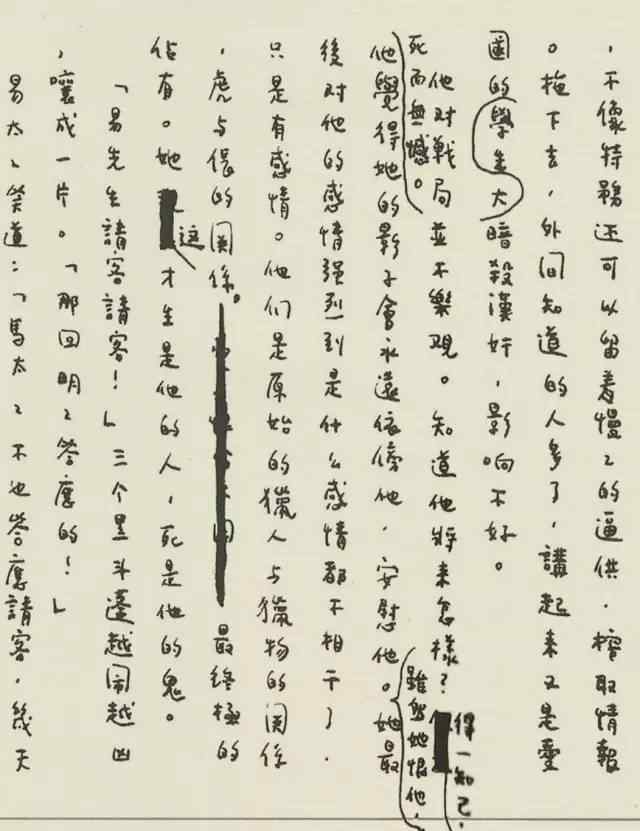 ，不像特務还可以留着慢々的逼供，榨取情報
。拖下去，外间知道的人多了，講起来又是愛
國的學生大暗殺漢奸，影响不好。
他对戰局並不樂观。知道他將来怎樣？得一知己，
死而無憾。
他覺得她的影子會永遠依傍他，安慰他。雖然她恨他，她最
後对他的感情强烈到是什么感情都不相干了，
只是有感情。他们是原始的獵人与獵物的関係
，虎与倀的関係。最終極的
佔有。她这才生是他的人，死是他的鬼。
「易先生請客請客！」三个黑斗蓬越閙越凶
，嚷成一片。「那回明々答應的！」
易太々笑道：「馬太々不也答應請客，幾天